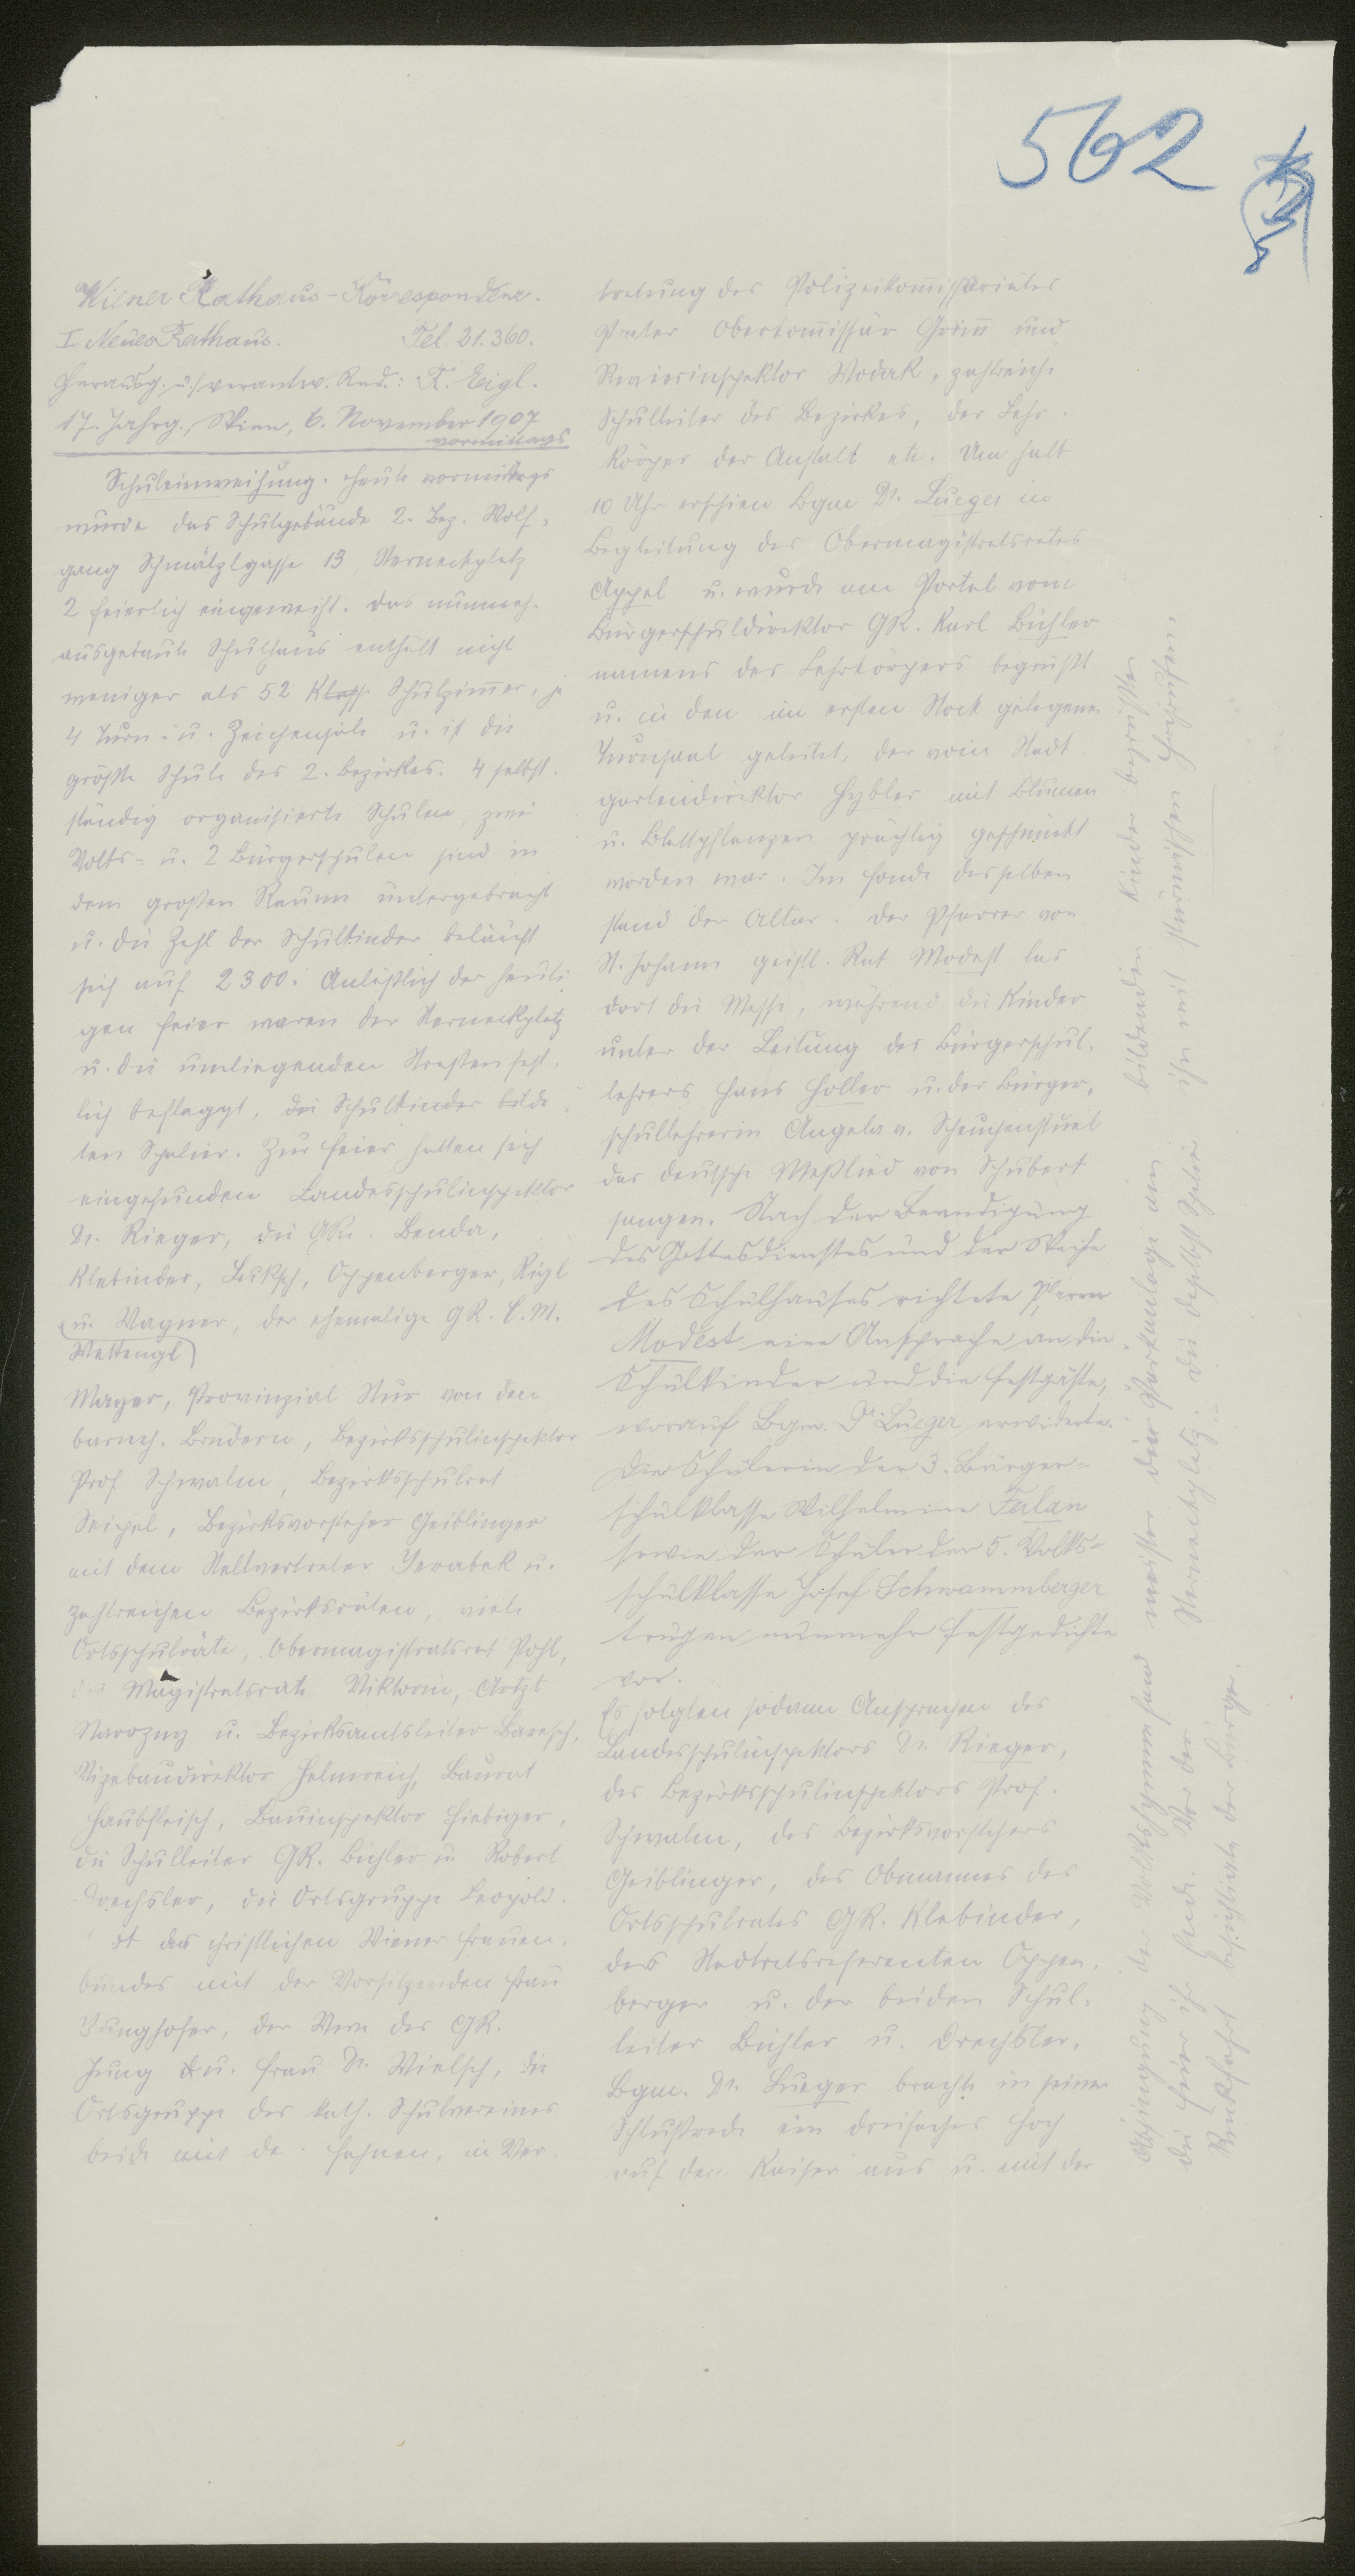 562
Wiener Rathaus-Korrespondenz.
I. Neues Rathaus. Tel. 21.360.
Herausg. u. verantw. Red.: F. Eigl.
17. Jahrg., Wien, 6. November 1907
vormittags
Schuleinweihung. Heute vormittags
wurde das Schulgebäude 2. Bez. Wolf-
gang Schmälzlgasse 13, Sterneckplatz
2 feierlich eingeweiht. Das nunmeh.
ausgebaute Schulhaus enthält nicht
weniger als 52 Klass Schulzimmer, je
4 Turn- u. Zeichensäle u. ist die
größte Schule des 2. Bezirkes. 4 selbst-
ständig organisierte Schulen, zwei
Volks- u. 2 Bürgerschulen sind in
dem großen Raume untergebracht
u. die Zahl der Schulkinder beläuft
sich auf 2300. Anläßlich der heuti-
gen Feier waren der Sterneckplatz
u. die umliegenden Straßen fest-
lich beflaggt, die Schulkinder bilde-
ten Spalier. Zur Feier hatten sich
eingefunden Landesschulinspektor
Dr. Rieger, die GRe. Benda,
Klebinder, Leksch, Oppenberger, Rigl
u. Wagner, der ehemalige GR. C. M.
Wettengl
Mayer, Provinzial Stur von den
barmh. Brüdern, Bezirksschulinspektor
Prof. Schwalm, Bezirksschulrat
Seipel, Bezirksvorsteher Geiblinger
mit dem Stellvertreter Jerabek u.
zahlreichen Bezirksräten, viele
Ortsschulräte, Obermagistratsrat Pohl,
die Magistratsräte Viktorin, Artzt
Nawrzny u. Bezirksamtsleiter Baresch,
Vizebaudirektor Helmreich, Baurat
Haubfleisch, Bauinspektor Fiebiger,
die Schulleiter GR. Bichler u. Robert
Drechsler, die Ortsgruppe Leopold-
dt des christlichen Wiener Frauen-
bundes mit der Vorsitzenden Frau
Junghofer, der Witwe des GR.
Jung u. Frau Dr. Wielsch, die
Ortsgruppe des kath. Schulvereines
beide mit de Fahnen, in Ver-
tretung des Polizeikommissariates
Prater Oberkommissär Grimm und
Revierinspektor Wodak, zahlreiche
Schulleiter des Bezirkes, der Lehr-
körper der Anstalt etc. Um halb
10 Uhr erschien Bgm Dr. Lueger in
Begleitung des Obermagistratsrates
Appel u. wurde am Portal vom
Bürgerschuldirektor GR. Karl Bichler
namens des Lehrkörpers begrüßt
u. in den im ersten Stock gelegenen
Turnsaal geleitet, der vom Stadt-
gartendirektor Hybler mit Blumen
u. Blattpflanzen prächtig geschmückt
worden war. Im Fonde desselben
stand der Altar. Der Pfarrer von
St. Johann geistl. Rat Modest las
dort die Messe, während die Kinder
unter der Leitung des Bürgerschul-
lehrers Hans Holler u. der Bürger-
schullehrerin Angela v. Scheuchenstuel
das deutsche Meßlied von Schubert
sangen. Nach der Beendigung
des Gottesdienstes und der Weihe
des Schulhauses richtete Pfarrer
Modest eine Ansprache an die
Schulkinder und die Festgäste,
worauf Bgm. Dr. Lueger erwiderte.
Die Schülerin der 3. Bürger-
schulklasse Wilhelmine Ferlan
sowie der Schüler der 5. Volks-
schulklasse Josef Schwammberger
trugen nunmehr Festgedichte
vor.
Es folgten sodann Ansprachen des
Landesschulinspektors Dr. Rieger,
des Bezirksschulinspektors Prof.
Schwalm, des Bezirksvorstehers
Geiblinger, des Obmannes des
Ortsschulrates GR. Klebinder,
des Stadtratsreferenten Oppen-
berger u. der beiden Schul-
leiter Bichler u. Drechsler.
Bgm. Dr. Lueger brachte in seiner
Schlußrede ein dreifaches Hoch
auf den Kaiser aus u. mit der
Absingung der Volkshymne fand
die Feier ihr Ende. Vor der
Rückfahrt besichtigte der Bürger-
meister die Parkanlage am
Sterneckplatz; die daselbst Spalier
bildenden Kinder begrüßten
ihn mit stürmischen Hochrufen.